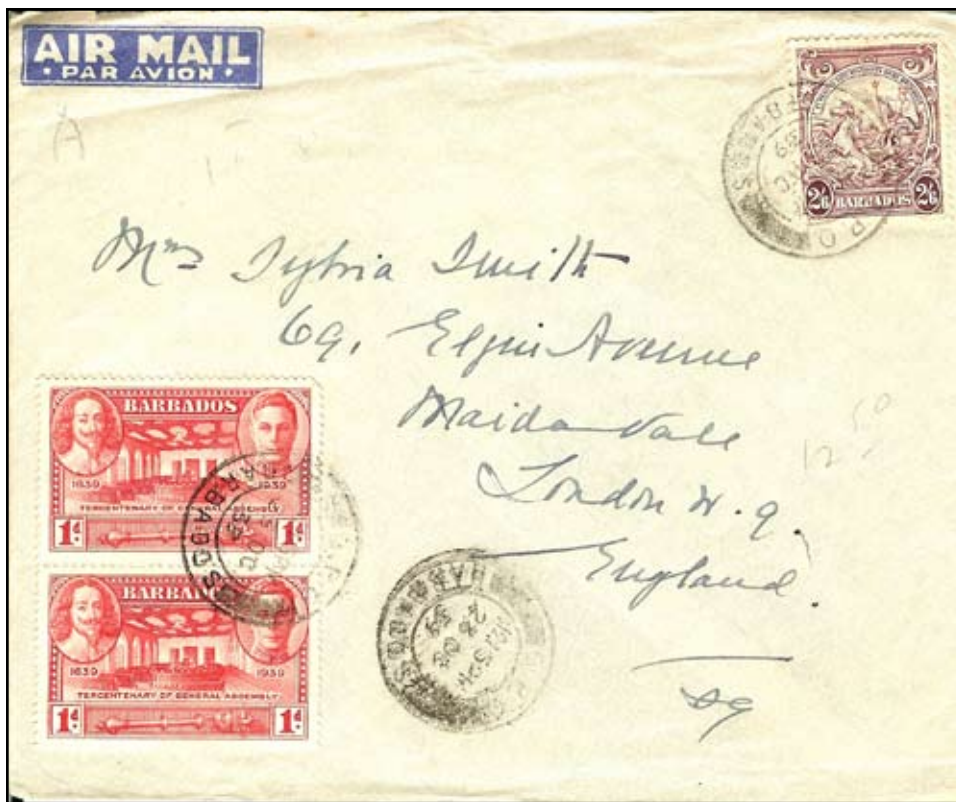 AIR MAIL
• PAR AVION •
A
2/6 BARBADOS 2/6
Mrs Sylvia Smith
69, Elgin Avenue
Maida Vale
London W. 9.
England.
BARBADOS
1639 1939
TERCENTENARY OF GENERAL ASSEMBLY
1d 1d
BARBADOS
1639 1939
TERCENTENARY OF GENERAL ASSEMBLY
1d 1d
G.P.O.
BARBADOS
OC
39
BARBADOS
OC
39
BARBADOS
OC
39
12 50